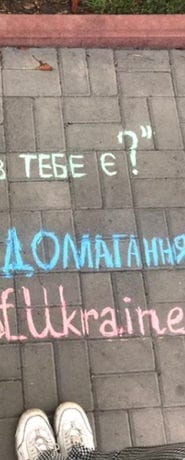 в тебе є?"
домагання
fUkraine